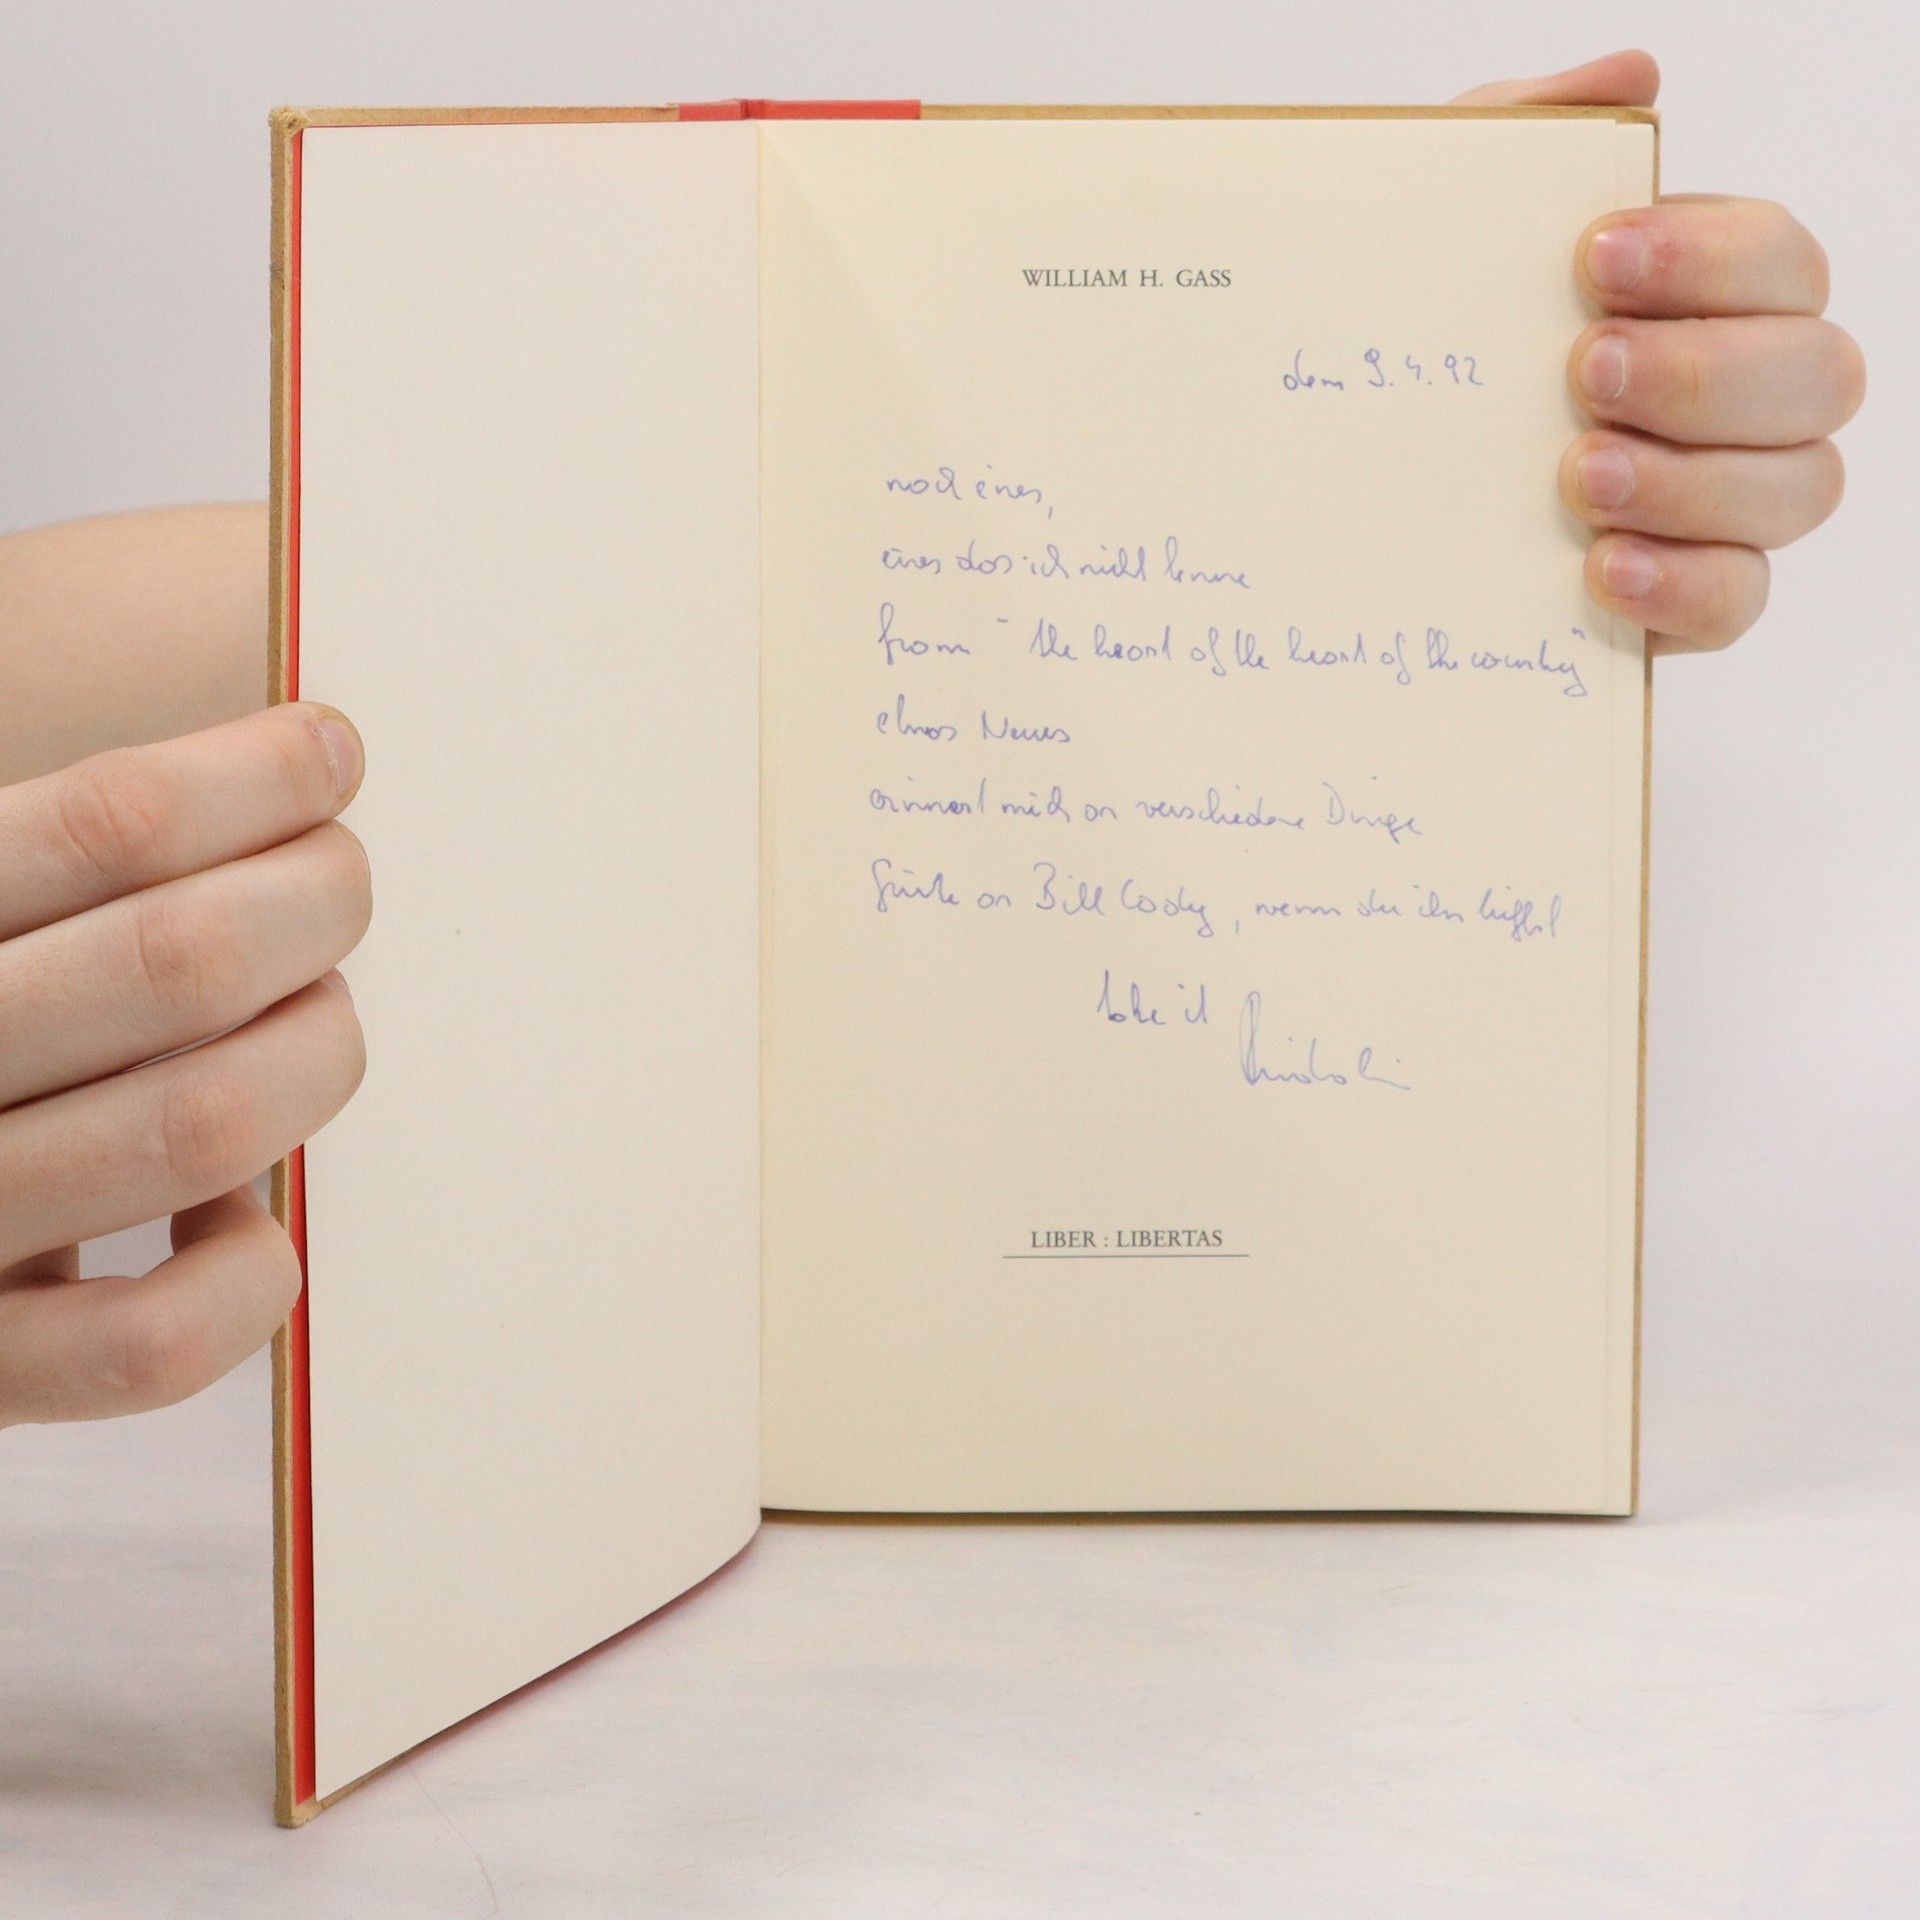 WILLIAM H. GASS
den 9.4.92
noch eines,
eines das ich nicht kenne
from "the heart of the heart of the country"
etwas Neues
erinnert mich an verschiedene Dinge
Grüße an Bill Cody, wenn du ihn triffst
take it
LIBER : LIBERTAS